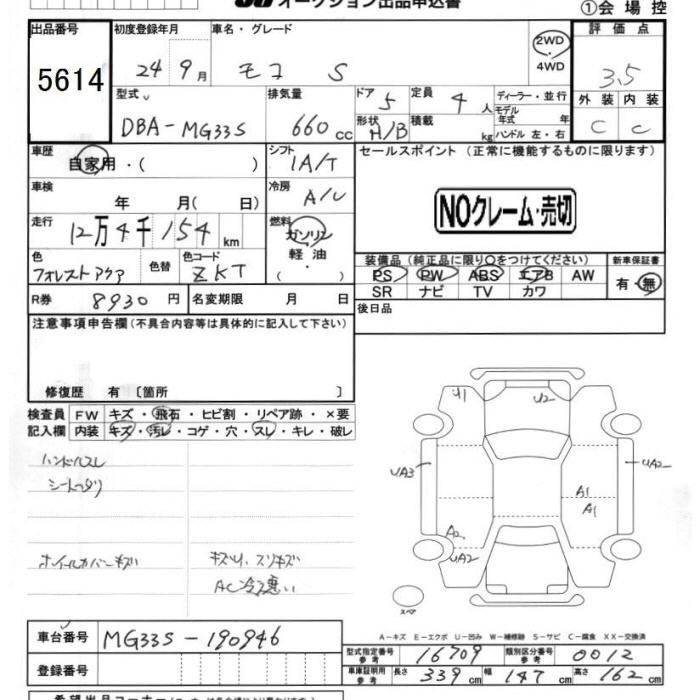 オークション出品申込書
①会場控
出品番号 初度登録年月 車名・グレード 評価点
5614 24 9月 モコ S 2WD 4WD 3.5
型式 排気量 ドア 定員 ディーラー・並行 外装 内装
DBA-MG33S 660cc 5 4人 モデル年式 年 C C
形状 H/B 積載 kg ハンドル 左・右
車歴 シフト セールスポイント(正常に機能するものに限ります)
自家用・( ) IA/T
車検 冷房
年 月( 日) A/C
NOクレーム・売切
走行 燃料
12万4千154km ガソリン
軽油
・( )
色 色替 色コード
フォレストアクア ZKT
装備品(純正品に限り○をつけてください) 新車保証書
PS PW ABS エアB AW 有・無
SR ナビ TV カワ
R券 8930円 名変期限 月 日
後日品
注意事項申告欄(不具合内容等は具体的に記入して下さい)
修復歴 有〔箇所 〕
検査員 FW キズ・飛石・ヒビ割・リペア跡・×要
記入欄 内装 キズ・汚レ・コゲ・穴・スレ・キレ・破レ
ハンドルスレ
U1 U2
UA3 UA2
A1
A1
A2
UA2
ホイールカバーキズ
スペア
A-キズ E-エクボ U-凹み W-補修跡 S-サビ C-腐食 XX-交換済
車台番号 MG33S-190946
型式指定番号 参考 16709 類別区分番号 参考 0012
登録番号
車庫証明用 参考 長さ 339cm 幅 147cm 高さ 162cm
希望出品コーナー